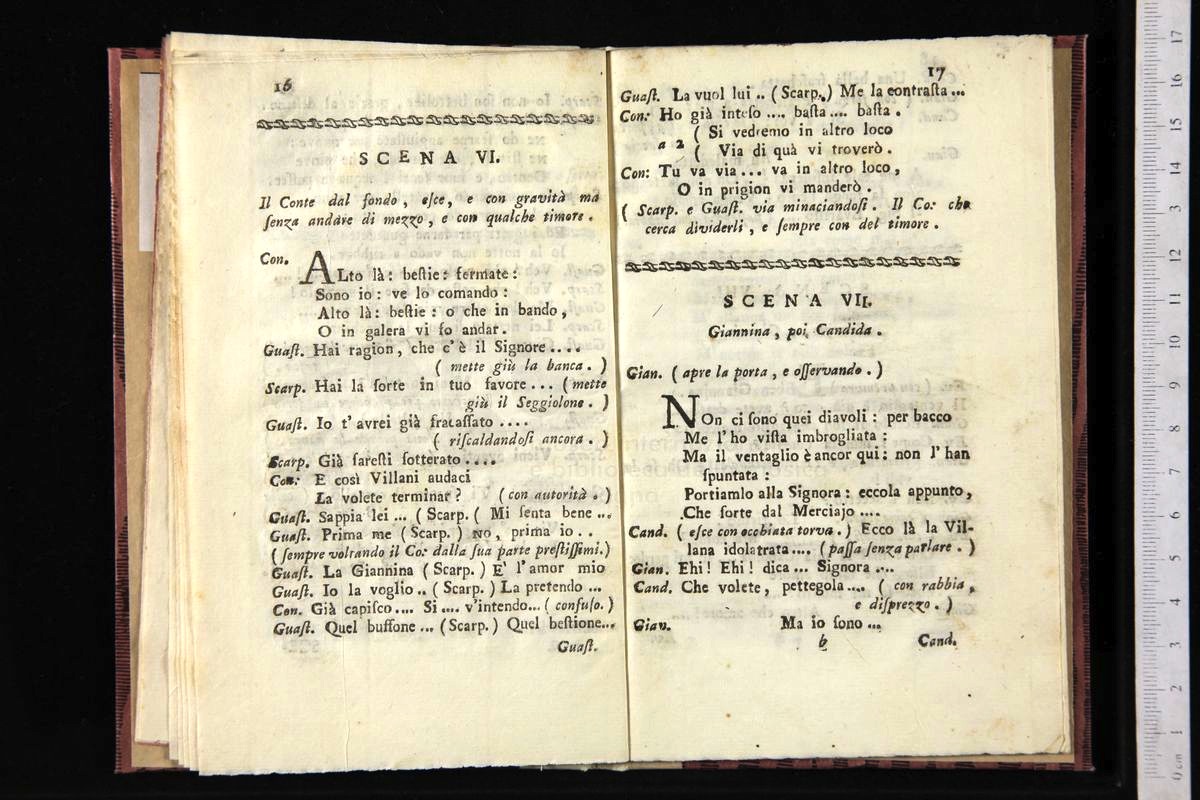 16
SCENA VI.
Il Conte dal fondo, eſce, e con gravità ma
ſenza andare di mezzo, e con qualche timore.
Con. ALto là: beſtie: fermate:
Sono io: ve lo comando:
Alto là: beſtie: o che in bando,
O in galera vi fo andar.
Guaſt. Hai ragion, che c'è il Signore....
( mette giù la banca. )
Scarp. Hai la ſorte in tuo favore... (mette
giù il Seggiolone. )
Guaſt. Io t'avrei già fracaſſato ....
( riſcaldandoſi ancora. )
Scarp. Già ſareſti ſotterato....
Con: E così Villani audaci
La volete terminar? (con autorità.)
Guaſt. Sappia lei ... (Scarp. ( Mi ſenta bene...
Guaſt. Prima me (Scarp.) NO, prima io..
(ſempre voltando il Co: dalla ſua parte preſtiſſimi.)
Guaſt. La Giannina (Scarp.) E' l'amor mio
Guaſt. Io la voglio.. (Scarp.) La pretendo...
Con. Già capiſco.... Si .... v'intendo... (confuſo.)
Guaſt. Quel buffone ... (Scarp.) Quel beſtione...
Guaſt.
17
Guaſt. La vuol lui .. (Scarp.) Me la contraſta ...
Con: Ho già inteſo .... baſta .... baſta.
( Si vedremo in altro loco
a 2 ( Via di quà vi troverò.
Con: Tu va via... va in altro loco,
O in prigion vi manderò.
( Scarp. e Guaſt. via minaciandoſi. Il Co: che
cerca dividerli, e ſempre con del timore.
SCENA VII.
Giannina, poi Candida.
Gian. ( apre la porta, e oſſervando. )
NOn ci ſono quei diavoli: per bacco
Me l'ho viſta imbrogliata:
Ma il ventaglio è ancor qui: non l'han
ſpuntata:
Portiamlo alla Signora: eccola appunto,
Che ſorte dal Merciajo ....
Cand. ( eſce con occhiata torva. ) Ecco là la Vil-
lana idolatrata.... (paſſa ſenza parlare. )
Gian. Ehi! Ehi! dica ... Signora ....
Cand. Che volete, pettegola.... ( con rabbia,
e diſprezzo. )
Gian. Ma io ſono ...
b Cand.